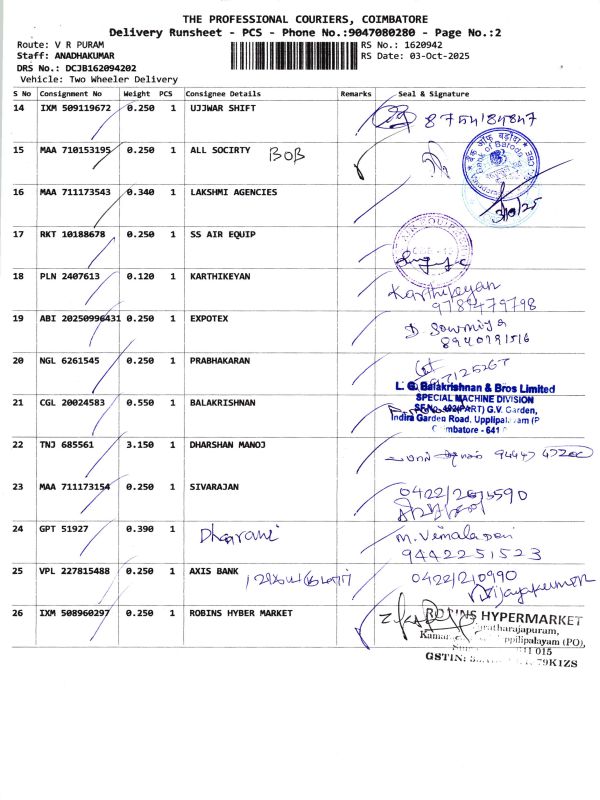 THE PROFESSIONAL COURIERS, COIMBATORE
Delivery Runsheet - PCS - Phone No.:9047080280 - Page No.:2
Route: V R PURAM
RS No.: 1620942
Staff: ANADHAKUMAR
RS Date: 03-Oct-2025
DRS No.: DCJB162094202
Vehicle: Two Wheeler Delivery
S No Consignment No Weight PCS Consignee Details Remarks Seal & Signature
14 IXM 509119672 0.250 1 UJJWAR SHIFT 8754184847
15 MAA 710153195 0.250 1 ALL SOCIRTY BOB
Bank of Baroda
16 MAA 711173543 0.340 1 LAKSHMI AGENCIES
3/10/25
17 RKT 10188678 0.250 1 SS AIR EQUIP
18 PLN 2407613 0.120 1 KARTHIKEYAN Karthikeyan
9789479798
19 ABI 20250996431 0.250 1 EXPOTEX D Sowmiya
8940791516
20 NGL 6261545 0.250 1 PRABHAKARAN
L. G. Balakrishnan & Bros Limited
SPECIAL MACHINE DIVISION
21 CGL 20024583 0.550 1 BALAKRISHNAN
(PART) G.V. Garden,
Indira Garden Road, Upplipalayam (P
Coimbatore - 641
22 TNJ 685561 3.150 1 DHARSHAN MANOJ
23 MAA 711173154 0.250 1 SIVARAJAN
24 GPT 51927 0.390 1 Dharani M. Vimala Devi
9442251523
25 VPL 227815488 0.250 1 AXIS BANK 0422/210990
Vijayakumar
26 IXM 508960297 0.250 1 ROBINS HYBER MARKET ROBINS HYPERMARKET
ppilipalayam (PO),
GSTIN: 79K1ZS